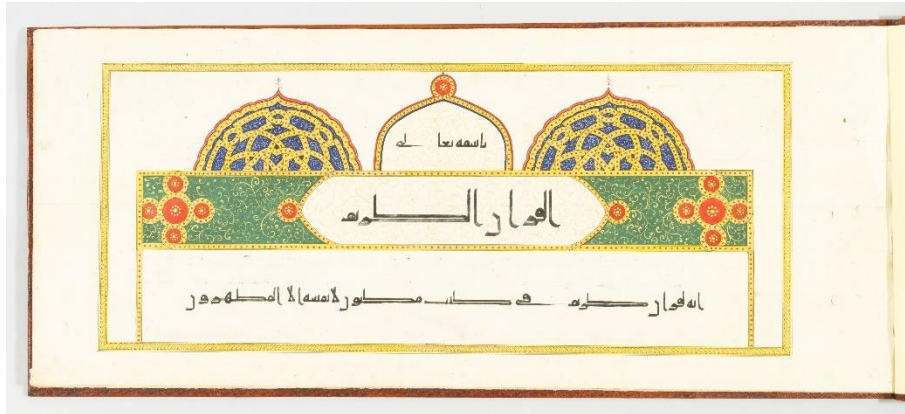 باسمه تعالى
القرآن الكريم
انه لقرآن كريم في كتاب مكنون لا يمسه الا المطهرون